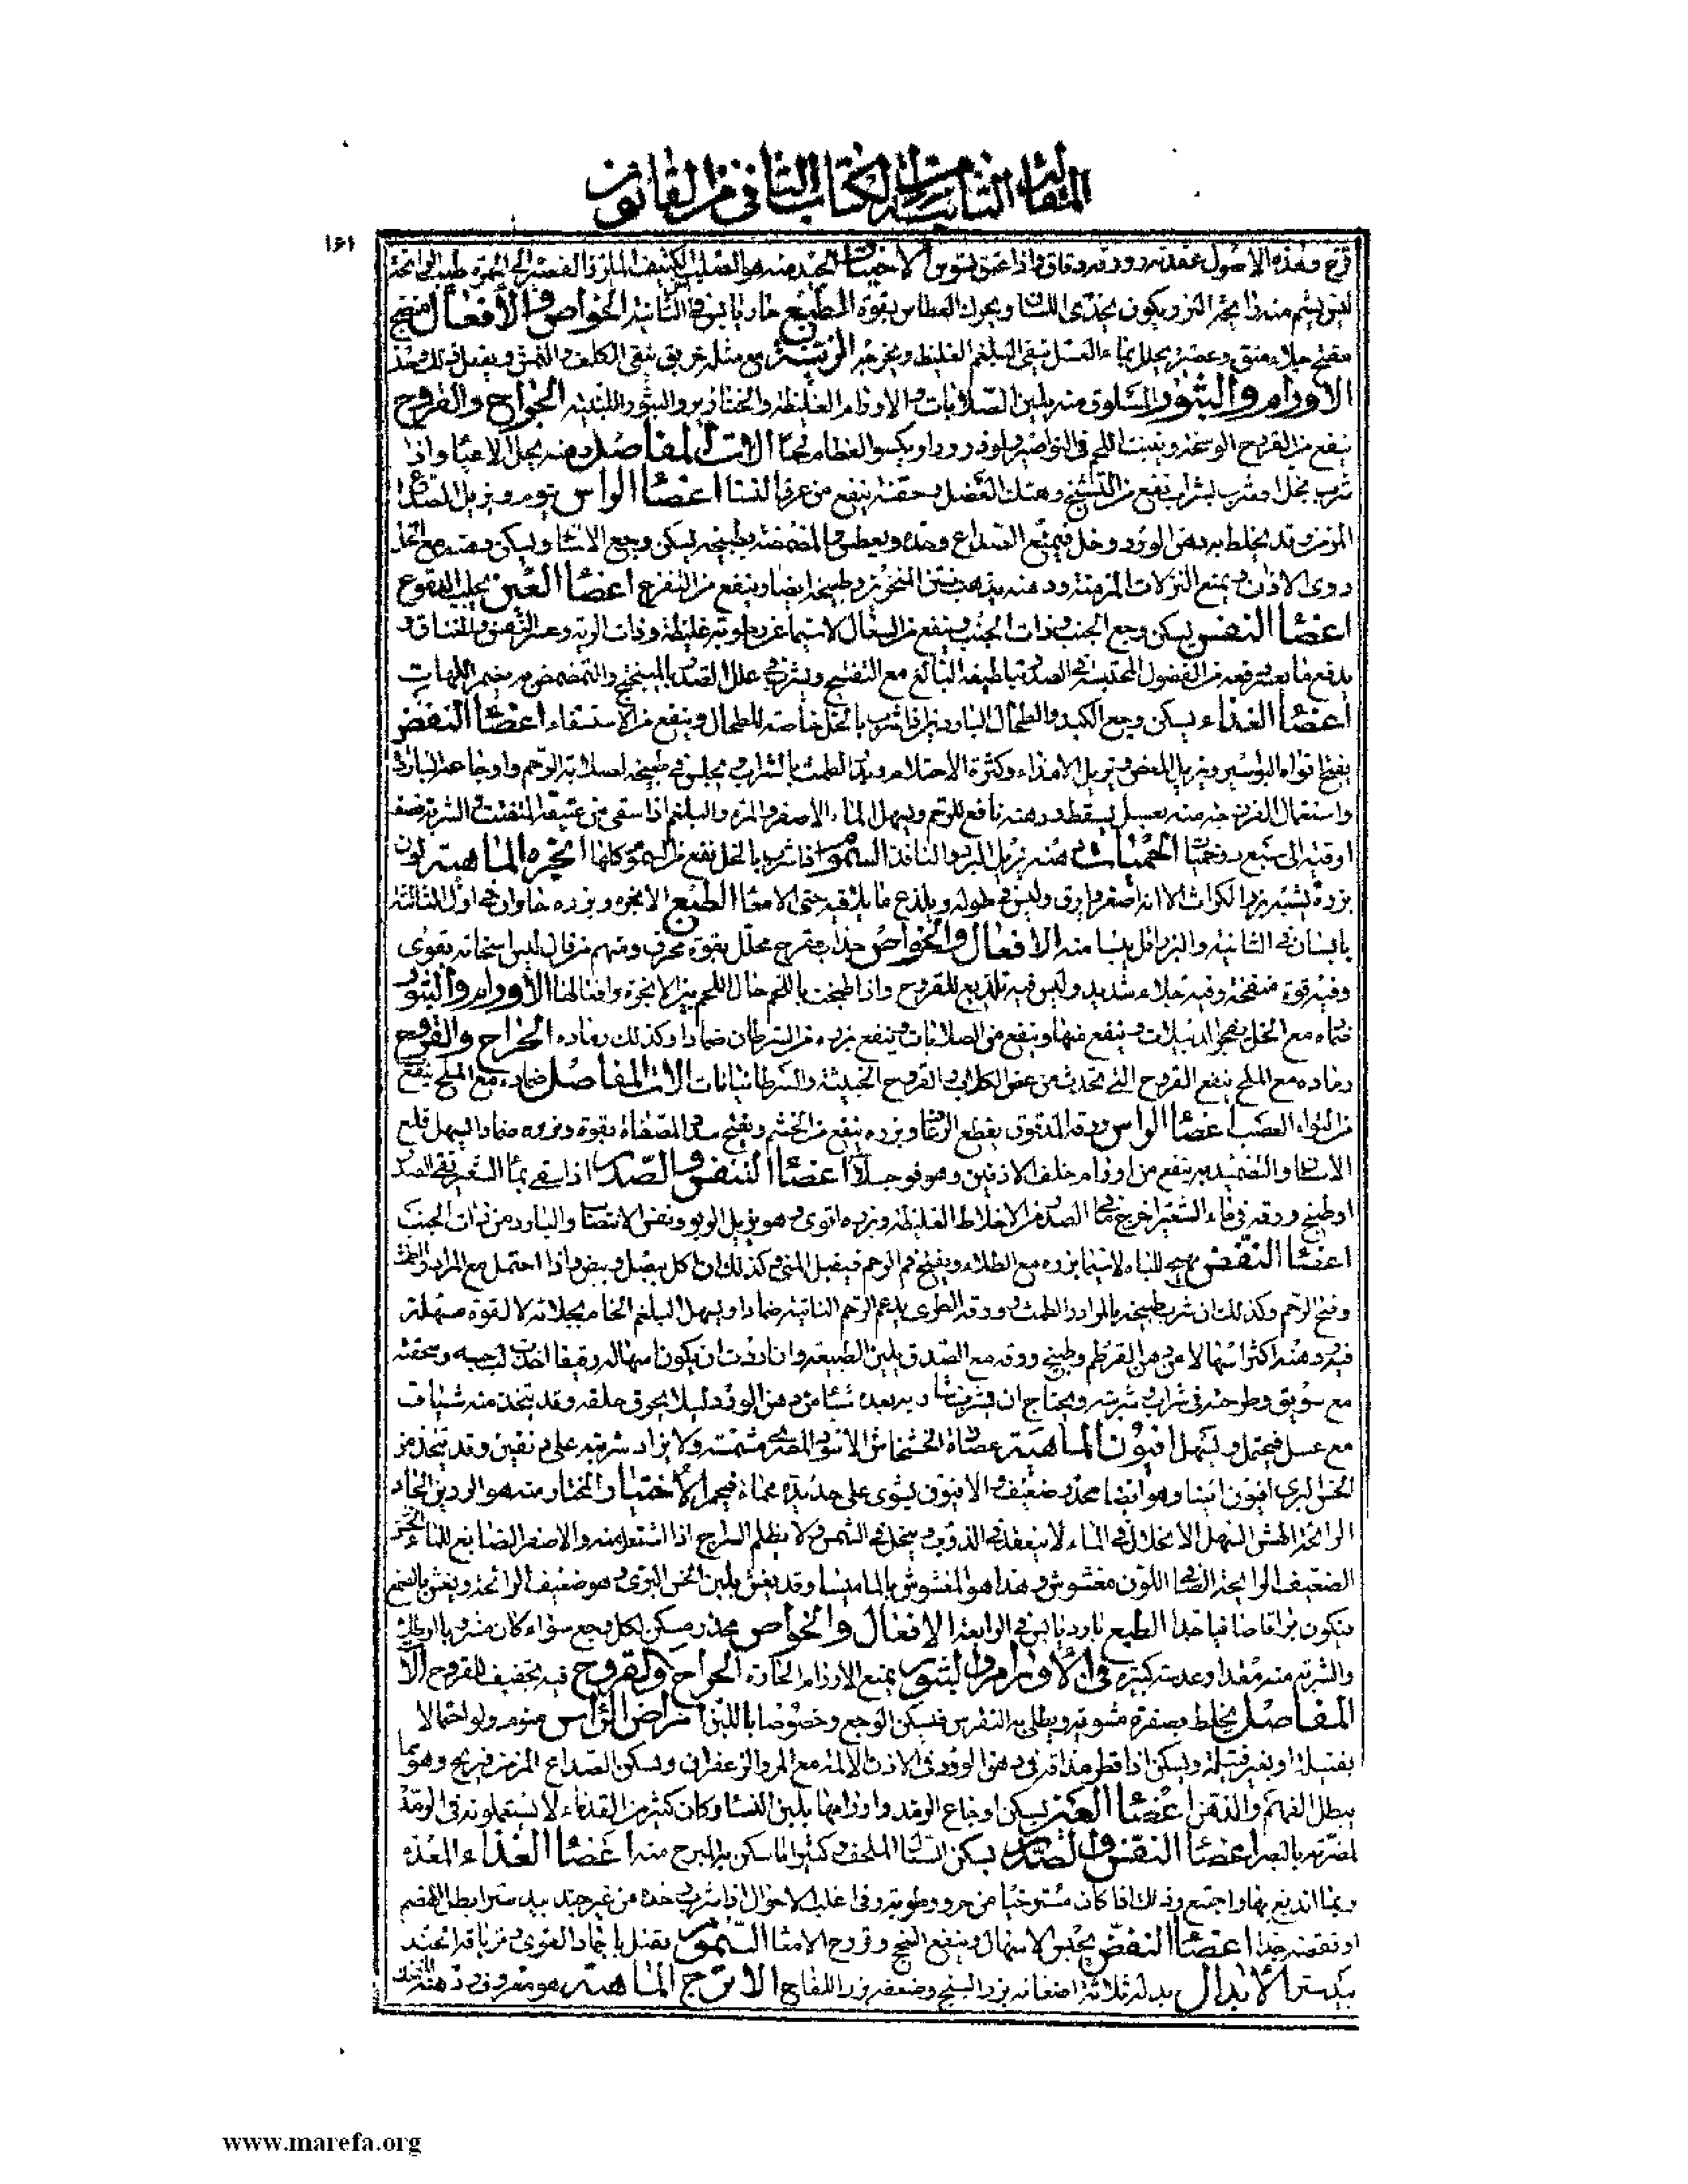 المقالة الثانية من الكتاب الثاني من القانون
١٦١
قزح وهذه الاصول عقد دود فاذا عتق يتوس الاختيار الجيد منه هو الصلب الكثيف الملزز طيب الرائحة
ليس يشم منه رائحة النز ويكون يحذى اللسان ويحرك العطاس بقوة الطبع حار يابس في الثانية الخواص والأفعال منضج
مفتح جلاء منق وعصيره يحلل بماء العسل ينقى البلغم الغليظ ويخرجه الزينة مع مثله خربق ينقى الكلف والنمش ويفعل ذلك وحده
الأورام والبثور المسلوق منه يلين الصلابات والاورام الغليظة والخنازير والبثور اللبنية الجراح والقروح
ينفع من القروح الوسخة وينبت اللحم في النواصير ولو ذرورا ويكسو العظام لحما آلات المفاصل دهنه يحل الاعياء واذا
شرب بخل او شرب بشراب نفع من التشنج وهتك العضل وحقنته ينفع من عرق النسا اعضاء الراس ينوم ويزيل الصداع
المزمن وقد يخلط به دهن الورد وخل فيمنع الصداع وحده ويعطس والمضمضة بطبيخه يسكن وجع الاسنان ويسكن دهنه مع الخل
دوى الاذان ويمنع النزلات المزمنة ودهنه يذهب نتن المنخرين وطبيخه ايضا وينفع من التفزع اعضاء العين يجلب الدموع
اعضاء النفس يسكن وجع الجنب وذات الجنب وينفع من السعال لاسيما عن رطوبة غليظة وذات الرية وعسر النفس والخناق و
يدفع ما يعسر دفعه من الفضول المحتبسة في الصدر بتلطيفه البالغ مع التفتيح ويشرب في علل الصدر بالميبختج والتمضمض به يضمر اللهاة
اعضاء الغذاء يسكن وجع الكبد والطحال الباردين اذا شرب بالخل خاصة للطحال وينفع من الاستسقاء اعضاء النفض
يفتح افواه البواسير ويزيل المغص ويزيل الامذاء وكثرة الاحتلام ويدر الطمث بالشراب ويجلس في طبيخه لصلابة الرحم واوجاعه الباردة
واستعمال الفرزجة منه بعسل يسقط ودهنه نافع للرحم ويسهل الماء الاصفر والمرة والبلغم اذا سقى من عتيقه المتفتت والشربة نصف
اوقية الى سبع درخميات الحميات دهنه يزيل البرد والنافض السموم اذا شرب بالخل نفع من السموم كلها انجره الماهية لون
بزره يشبه بزر الكراث الا انه اصفر وارق وليس في طوله ويلذع ما يلاقيه حتى الامعا الطبع الانجره وبزره حاران في اول الثالثة
يابسان في الثانية والبزر اقل يبسا منه الأفعال والخواص جذاب مقرح محلل بقوة محرق ومنهم من قال ليس اسخانه بقوى
وفيه قوة منفخة وفيه جلاء شديد وليس فيه تلذيع للقروح واذا طبخت باللحم الأورام والبثور
ضماده مع الخل يفجر الدبيلات وينفع منها وينفع من الصلابات وينفع بزره من السرطان ضمادا وكذلك رماده الجراح والقروح
رماده مع الملح ينفع القروح التي تحدث من عض الكلاب والقروح الخبيثة والسرطانية آلات المفاصل ضماده مع الملح ينفع
من التواء العصب اعضاء الراس ورقه المدقوق يقطع الرعاف وبزره ينفع من الخشم ويفتح سدد المصفاة بقوة وبزره ضمادا يسهل قلع
الاسنان والتضميد به ينفع من اورام خلف الاذنين وهو فوجثلا اعضاء النفس والصدر اذا سقى بماء الشعير نقى الصدر
او طبخ ورقه في ماء الشعير اخرج ما في الصدر من الاخلاط الغليظة وبزره اقوى وهو يزيل الربو ونفس الانتصاب والبارد من ذات الجنب
اعضاء النفض يهيج للباه لاسيما بزره مع الطلاء ويفتح فم الرحم فيقبل المنى وكذلك ان اكل ببصل وبيض واذا احتمل مع المر ادر الطمث
وفتح الرحم وكذلك ان شرب طبيخه بالمر ادر الطمث وورقه الطرى يدعم الرحم الناتية ضمادا ويسهل البلغم الخام بجلائه لا لقوة مسهلة
فيه ودهنه اكثر اسهالا من دهن القرطم وطبيخ ورقه مع الصدف يلين الطبيعة وان اردت ان يكون اسهاله رقيقا اخذت لب حبه وسحقته
مع سويق وطرحته في شراب وشربته ويحتاج ان يشرب شاربه بعده شيئا من دهن الورد لئلا يحرق حلقه وقد يتخذ منه شياف
مع عسل فيحتمل ويسهل افيون الماهية عصارة الخشخاش الاسود المصرى مشمسة ولا يزاد شربته على دانقين وقد يتخذ من
الخس البرى افيون ايضا وهو ايضا مخدر ضعيف الافيون يشوى على حديدة محماة فيحمر الأختيار والمختار منه هو الرزين الحاد
الرائحة الهش السهل الانحلال في الماء لا ينعقد في الذوب وينحل في الشمس ولا يظلم السراج اذا اشتعل منه والاصفر الصابغ للماء الخشن
الضعيف الرائحة الصافى اللون مغشوش وهذا هو المغشوش بالماميثا وقد يغش بلبن الخس البرى وهو ضعيف الرائحة ويغش بالصمغ
فيكون براقا صافيا جدا الطبع بارد يابس في الرابعة الافعال والخواص مخدر مسكن لكل وجع سواء كان مشربا او طلاء
والشربة منه مقدار عدسة كبيرة في الأورام والبثور يمنع الاورام الحارة الجراح والقروح فيه تجفيف للقروح آلات
المفاصل يخلط بصفرة مشوية ويطلى به النقرس فيسكن الوجع وخصوصا باللبن امراض الراس منوم ولو احتمالا
بفتيلة او بغير فتيلة ويسكن اذا قطر مذابه في دهن الورد في الاذن الالمة مع المر والزعفران ويسكن الصداع المزمن فيريح وهو مما
يبطل الفهم والذهن اعضاء العين يسكن اوجاع الرمد واورامها بلبن النساء وكان كثير من القدماء لا يستعملونه في الرمد
لمضرته بالبصر اعضاء النفس والصدر يسكن السعال الملحف وكثيرا ما سكن به المبرح منه اعضاء الغذاء المعدة
ربما اندبغ بها واجتمع وذلك اذا كان مسترخيا من حر ورطوبة وفي اغلب الاحوال اذا شرب وحده من غير جندبيدستر ابطل الهضم
او نقصه جدا اعضاء النفض يحبس الاسهال وينفع السحج وقروح الامعاء السموم يقتل باجماد القوى وترياقه الجند
بيدستر الأبدال بدله ثلاثة اضعافه بزر البنج وضعفه بزر اللفاح الاترج الماهية هو معروف ودهنه
www.marefa.org